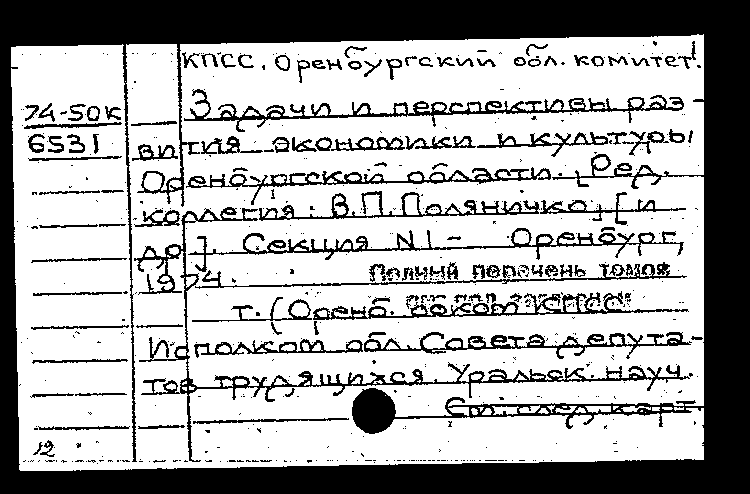 КПСС. Оренбургский обл. комитет.
74-50К Задачи и перспективы раз-
6531 вития экономики и культуры
Оренбургской области. [Ред.
коллегия: В.П.Поляничко] [и
др]. Секция N1- Оренбург,
1974. Полный перечень томов
т. (Оренб. обком КПСС
Исполком обл. Совета депута-
тов трудящихся. Уральск. науч.
См. след. карт.
12